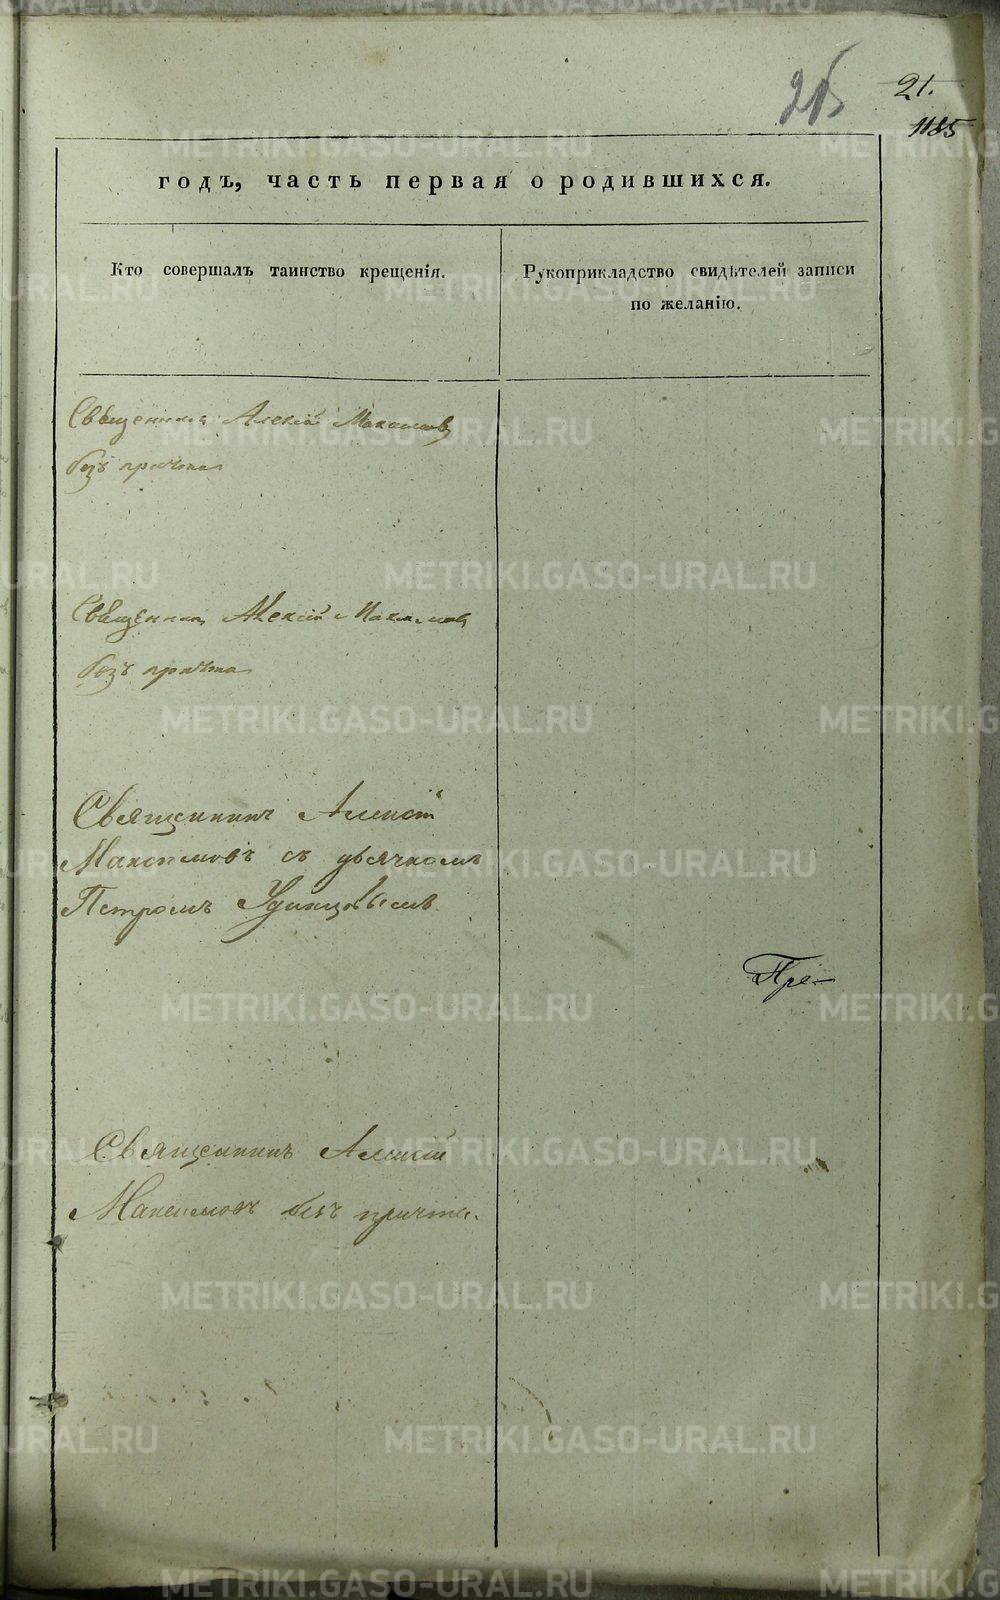 21.
1185
годъ, часть первая о родившихся.
Кто совершалъ таинство крещенія.
Рукоприкладство свидѣтелей записи
по желанію.
Священникъ Алексій Максимовъ
безъ причта
Священникъ Алексій Максимовъ
безъ причта
Священникъ Алексій
Максимовъ съ дьячкомъ
Петромъ Удинцовымъ
Пре-
Священникъ Алексій
Максимовъ безъ причта.
METRIKI.GASO-URAL.RU